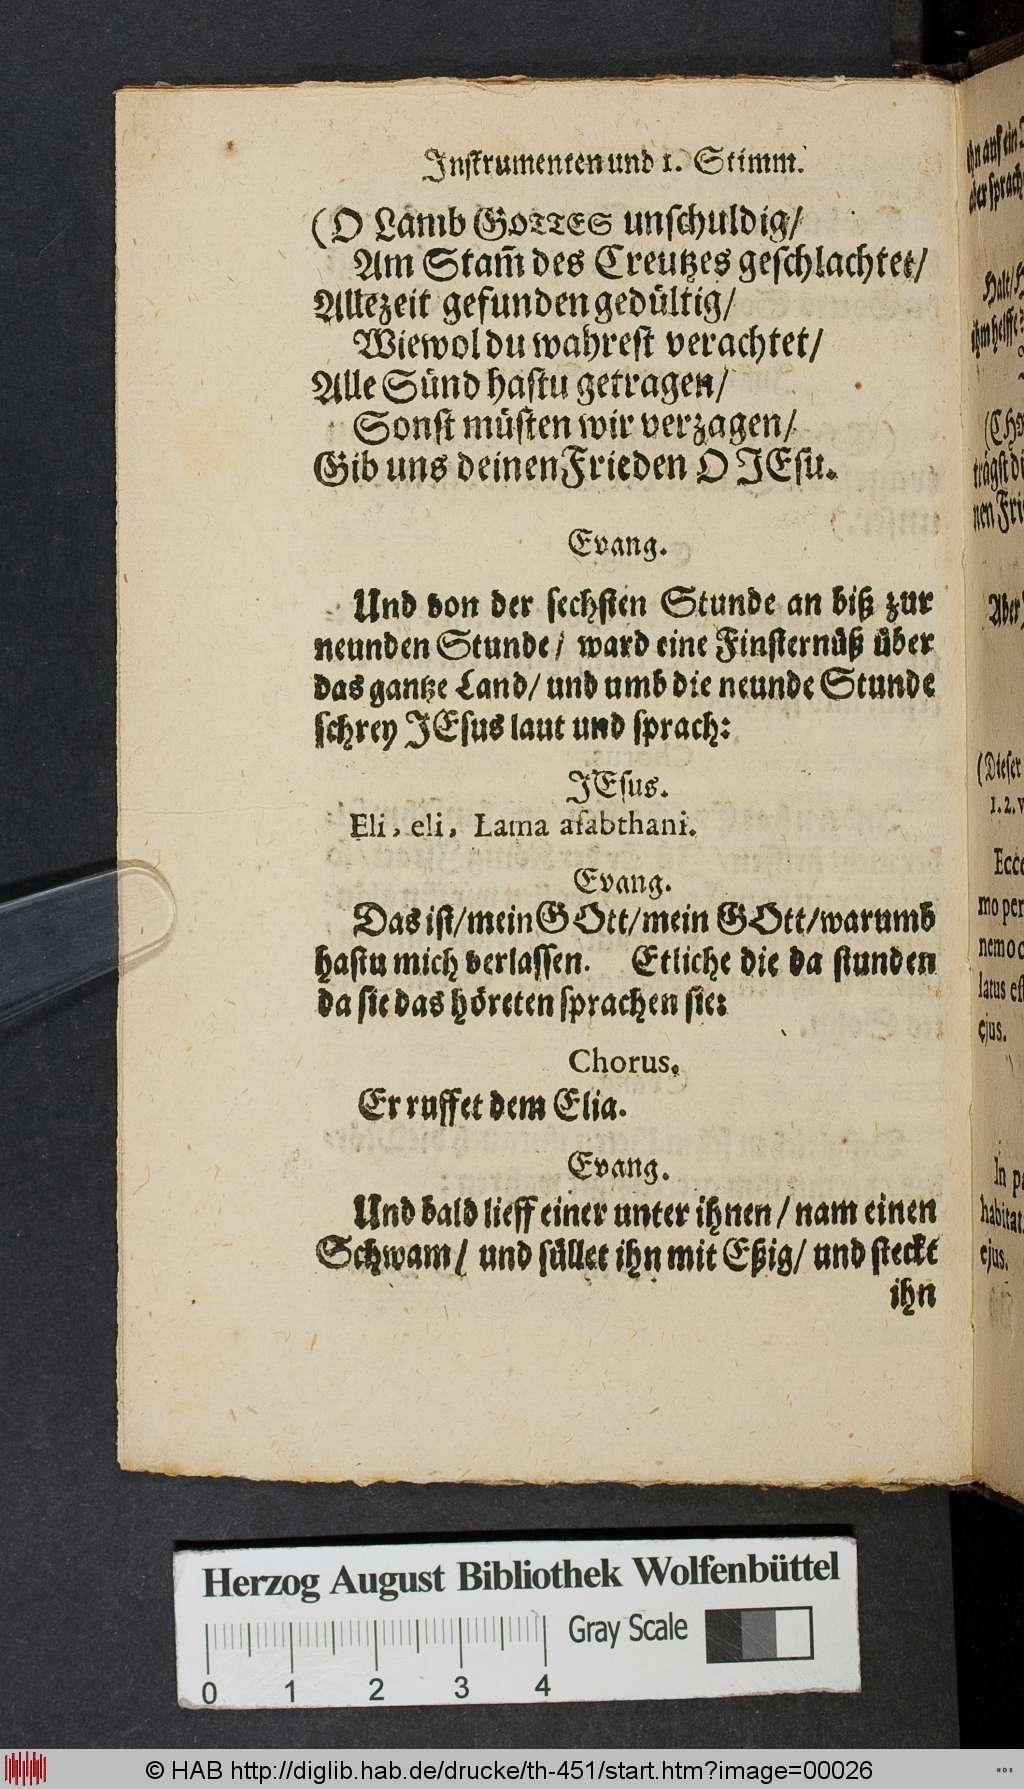 Instrumenten und 1. Stimm.
(O Lamb GOTTES unschuldig/
Am Stam̃ des Creutzes geschlachtet/
Allezeit gefunden gedültig/
Wiewol du wahrest verachtet/
Alle Sünd hastu getragen/
Sonst müsten wir verzagen/
Gib uns deinen Frieden O JEsu.
Evang.
Und von der sechsten Stunde an biß zur
neunden Stunde/ ward eine Finsternüß über
das gantze Land/ und umb die neunde Stunde
schrey JEsus laut und sprach:
JEsus.
Eli, eli, Lama asabthani.
Evang.
Das ist/mein GOtt/mein GOtt/warumb
hastu mich verlassen. Etliche die da stunden
da sie das höreten sprachen sie:
Chorus.
Er ruffet dem Elia.
Evang.
Und bald lieff einer unter ihnen/ nam einen
Schwam/ und füllet ihn mit Eßig/ und steckt
ihn
ihn auf ein
aber sprach
Halt/
ihm helffe
trägst di
nen Fri
Aber
(Dieser
1. 2. v
Ecce
mo per
nemo c
latus est
ejus.
In pa
habitat.
ejus.
Herzog August Bibliothek Wolfenbüttel
Gray Scale
0 1 2 3 4
© HAB http://diglib.hab.de/drucke/th-451/start.htm?image=00026